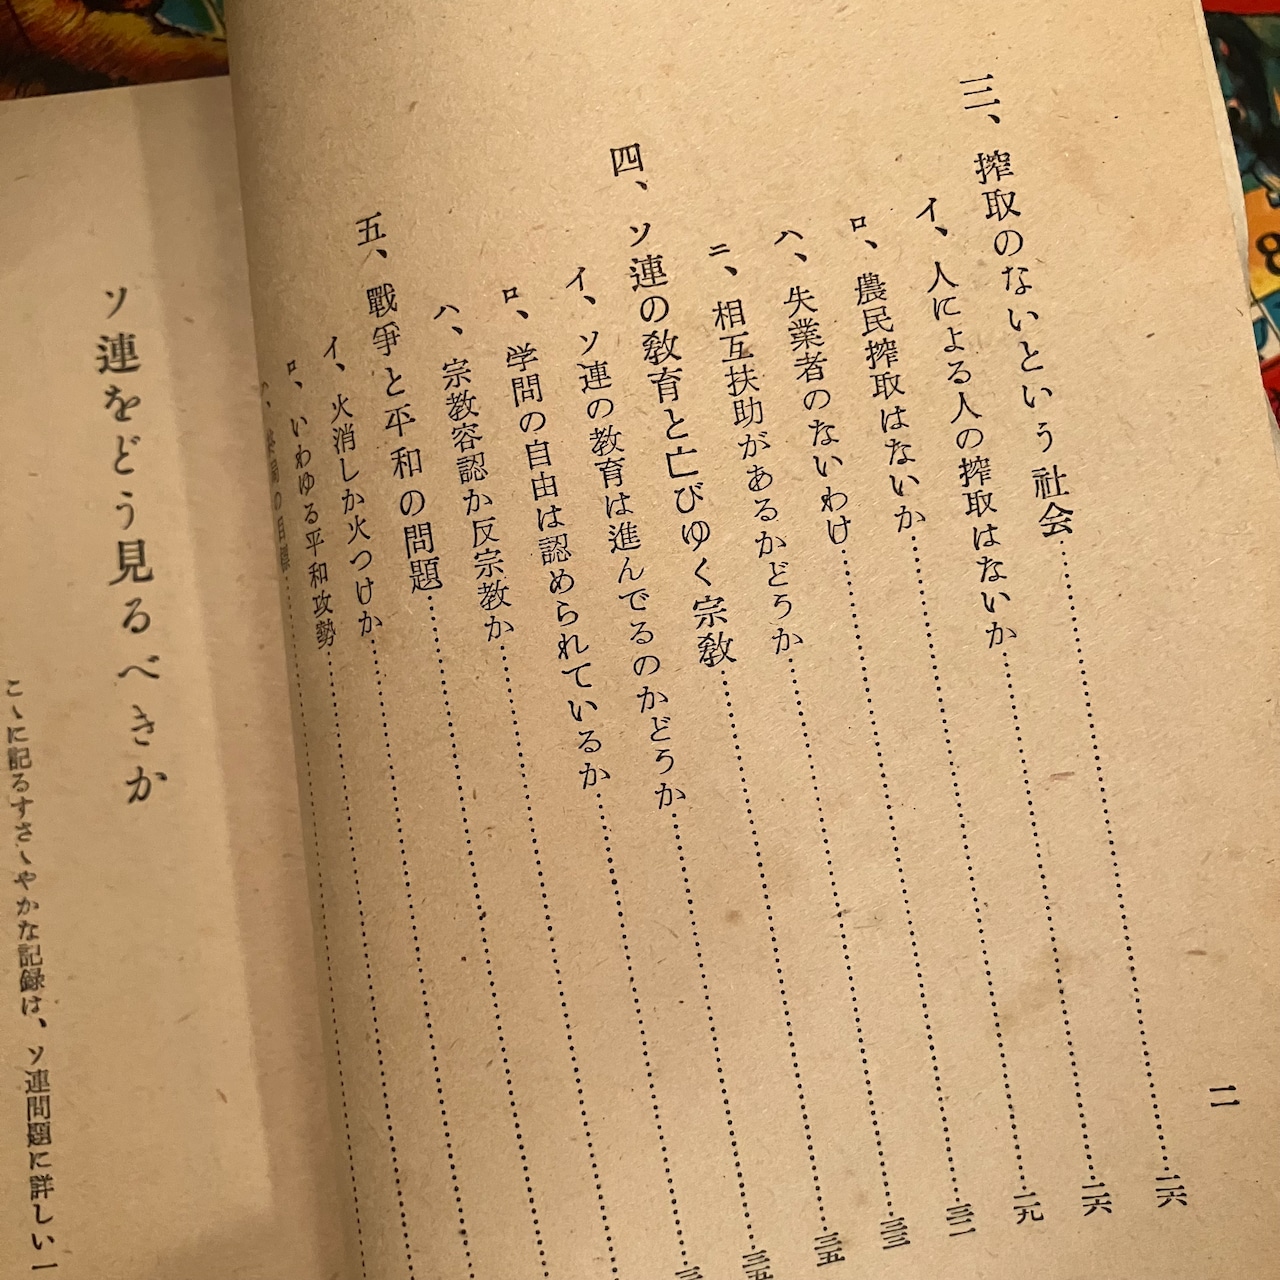 二
三、搾取のないという社会……二六
イ、人による人の搾取はないか……二六
ロ、農民搾取はないか……二九
ハ、失業者のないわけ……三二
ニ、相互扶助があるかどうか……三三
四、ソ連の教育と亡びゆく宗教……三五
イ、ソ連の教育は進んでるのかどうか……三五
ロ、学問の自由は認められているか……
ハ、宗教容認か反宗教か……
五、戰爭と平和の問題……
イ、火消しか火つけか……
ロ、いわゆる平和攻勢……
ソ連をどう見るべきか
こゝに記るすさゝやかな記録は、ソ連問題に詳しい一